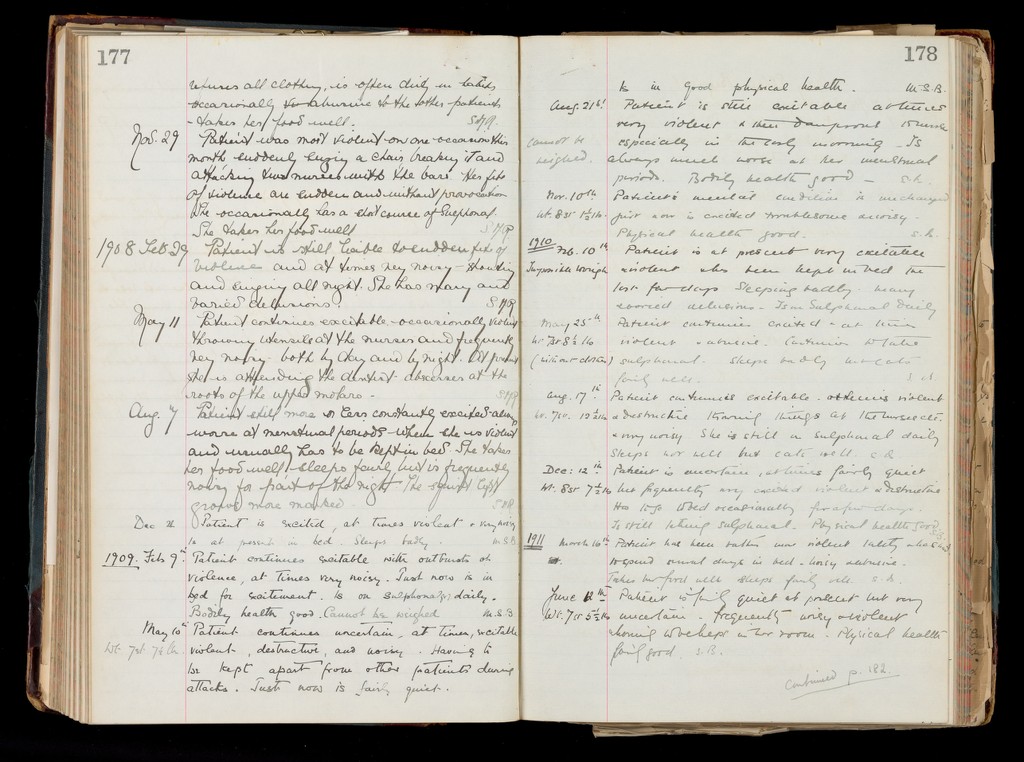 177
refuses all clothing, is often dirty in habits
occasionally abusive to the other patients
takes her food well. SHR
Nov. 29 Patient was most violent on one occasion this
month suddenly a chair breaking it and
attacking two nurses with the bars. Her fits
of violence are sudden and without provocation
She occasionally has a short course of Sulphonal.
She takes her food well SHR
1908 Feb 29 Patient is still liable to sudden fits of
violence and at times very noisy - shouting
and singing all night. She has many and
varied delusions. SHR
May 11 Patient continues excitable - occasionally violent
throwing utensils at the nurses and frequently
very noisy both by day and by night. At present
she is attending the dentist - abscesses at the
roots of the upper molars - SHR
Aug 7 Patient still more or less constantly excited always
worse at menstrual periods when she is violent
and usually has to be kept in bed. She takes
her food well sleeps fairly but is frequently
noisy for part of the night The
more marked SHR
Dec Patient is excited, at times violent & very noisy
is at present in bed. Sleeps badly. M.S.B
1909. Feb 9th Patient continues excitable with outbursts of
violence, at times very noisy. Just now is in
bed for excitement. Is on daily.
Bodily health good. Cannot be weighed M.S.B
May 10th Patient continues uncertain, at times, excitable
Wt. 7st. 7½lb. violent, destructive, and noisy. Having to
be kept apart from other patients during
attacks. Just now is fairly quiet.
178
Is in good physical health. M.S.B.
Aug. 21st Patient is still excitable at times
very violent & then dangerous
cannot be especially in the early morning. Is
weighed. always much worse at her menstrual
periods. Bodily health good -
Nov. 10th Patient's mental condition is unchanged
Wt. 8st just now is excited troublesome noisy.
Physical health good.
1910 Feb. 10th Patient is at present very excitable
Impossible weigh & violent has been kept in bed the
last few days Sleeping badly many
varied delusions. Is on Sulphonal daily
May 25th Patient continues excited - at times
Wt. 7st 8½ lb violent & abusive. Continues to take
(without clothes) sulphonal. Sleeps badly but eats
fairly well.
Aug. 17th Patient continues excitable - at times violent
Wt. 7st. & destructive throwing things at the nurses etc.
& very noisy She is still on Sulphonal daily
Sleeps not well but eats well.
Dec: 12th Patient is uncertain, at times fairly quiet
Wt. 8st 7½ lb but frequently very excited violent & destructive
Has to go to bed occasionally for a few days.
Is still taking sulphonal. Physical health good
1911 March 16th Patient has been rather more violent lately & has had
to spend several days in bed - noisy abusive.
Takes her food well sleeps fairly well.
June Patient is fairly quiet at present but very
Wt. 7st 5½ lb uncertain. Frequently noisy & violent
& having to be kept in her room. Physical health
fairly good.
Continued p. 182